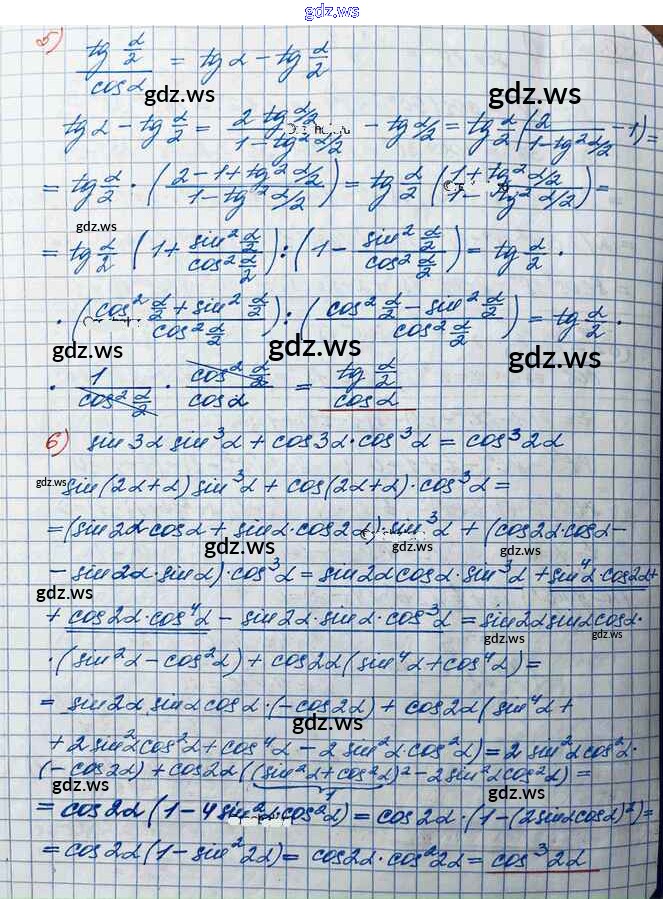 gdz.ws
5) tg α/2 / cos α = tg α − tg α/2
gdz.ws gdz.ws
tg α − tg α/2 = 2 tg α/2 / 1 − tg² α/2 − tg α/2 = tg α/2 (2 / 1 − tg² α/2 − 1) =
= tg α/2 · (2 − 1 + tg² α/2 / 1 − tg² α/2) = tg α/2 (1 + tg² α/2 / 1 − tg² α/2) =
gdz.ws
= tg α/2 (1 + sin² α/2 / cos² α/2) : (1 − sin² α/2 / cos² α/2) = tg α/2 ·
· (cos² α/2 + sin² α/2 / cos² α/2) : (cos² α/2 − sin² α/2 / cos² α/2) = tg α/2 ·
gdz.ws gdz.ws gdz.ws
· 1 / cos² α/2 · cos² α/2 / cos α = tg α/2 / cos α
6) sin 3α sin³α + cos 3α · cos³α = cos³ 2α
gdz.ws sin(2α+α) sin³α + cos(2α+α) · cos³α =
= (sin 2α cos α + sin α · cos 2α) · sin³α + (cos 2α · cos α −
gdz.ws gdz.ws gdz.ws
− sin 2α · sin α) · cos³α = sin 2α cos α · sin³α + sin⁴α · cos 2α +
gdz.ws
+ cos 2α · cos⁴α − sin 2α · sin α · cos³α = sin 2α sin α cos α ·
gdz.ws gdz.ws
· (sin²α − cos²α) + cos 2α (sin⁴α + cos⁴α) =
= sin 2α sin α cos α · (−cos 2α) + cos 2α (sin⁴α +
gdz.ws
+ 2 sin²α cos²α + cos⁴α − 2 sin²α cos²α) = 2 sin²α cos²α ·
(−cos 2α) + cos 2α ((sin²α + cos²α)² − 2 sin²α cos²α) =
gdz.ws 1 gdz.ws
= cos 2α (1 − 4 sin²α cos²α) = cos 2α · (1 − (2 sin α cos α)²) =
= cos 2α (1 − sin² 2α) = cos 2α · cos² 2α = cos³ 2α
gdz.ws gdz.ws